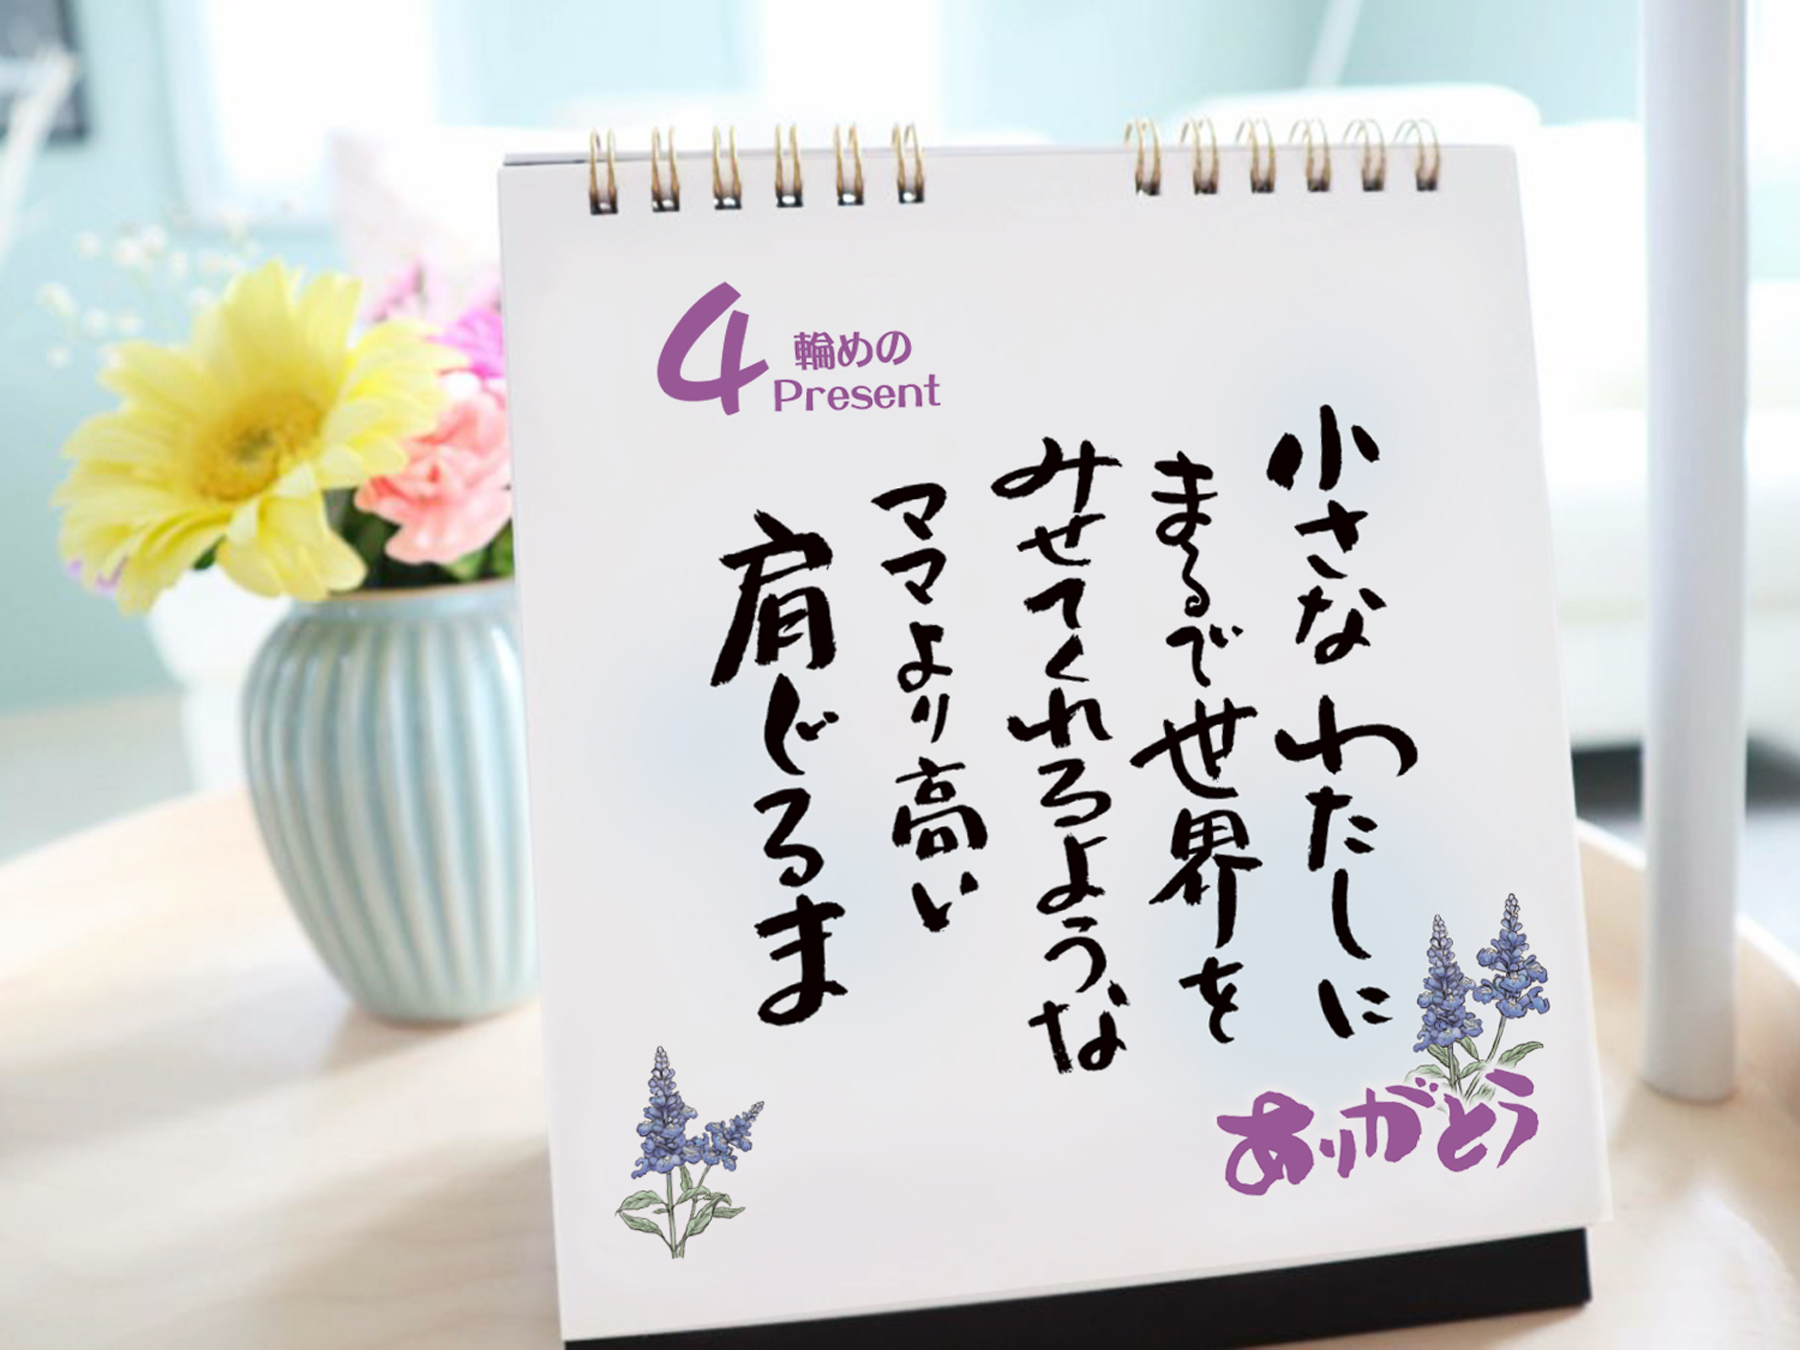 4輪めの
Present
小さなわたしに
まるで世界を
みせてくれるような
ママより高い
肩ぐるま
ありがとう